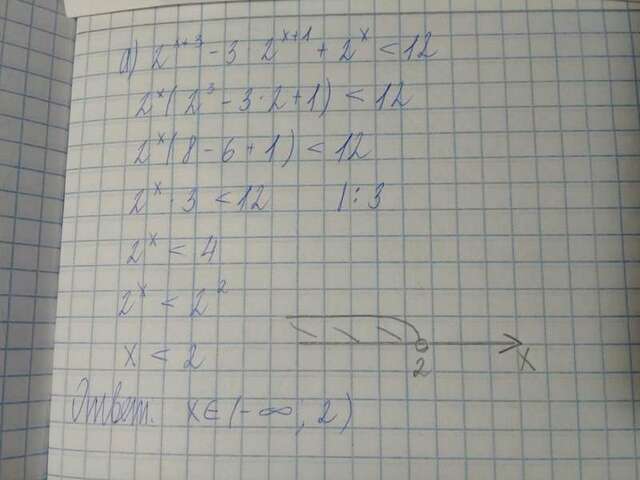 а) 2^{x+3} - 3 2^{x+1} + 2^x < 12
2^x(2^3 - 3·2 + 1) < 12
2^x(8 - 6 + 1) < 12
2^x · 3 < 12 |: 3
2^x < 4
2^x < 2^2
x < 2
2 X
Ответ. x∈(-∞, 2)